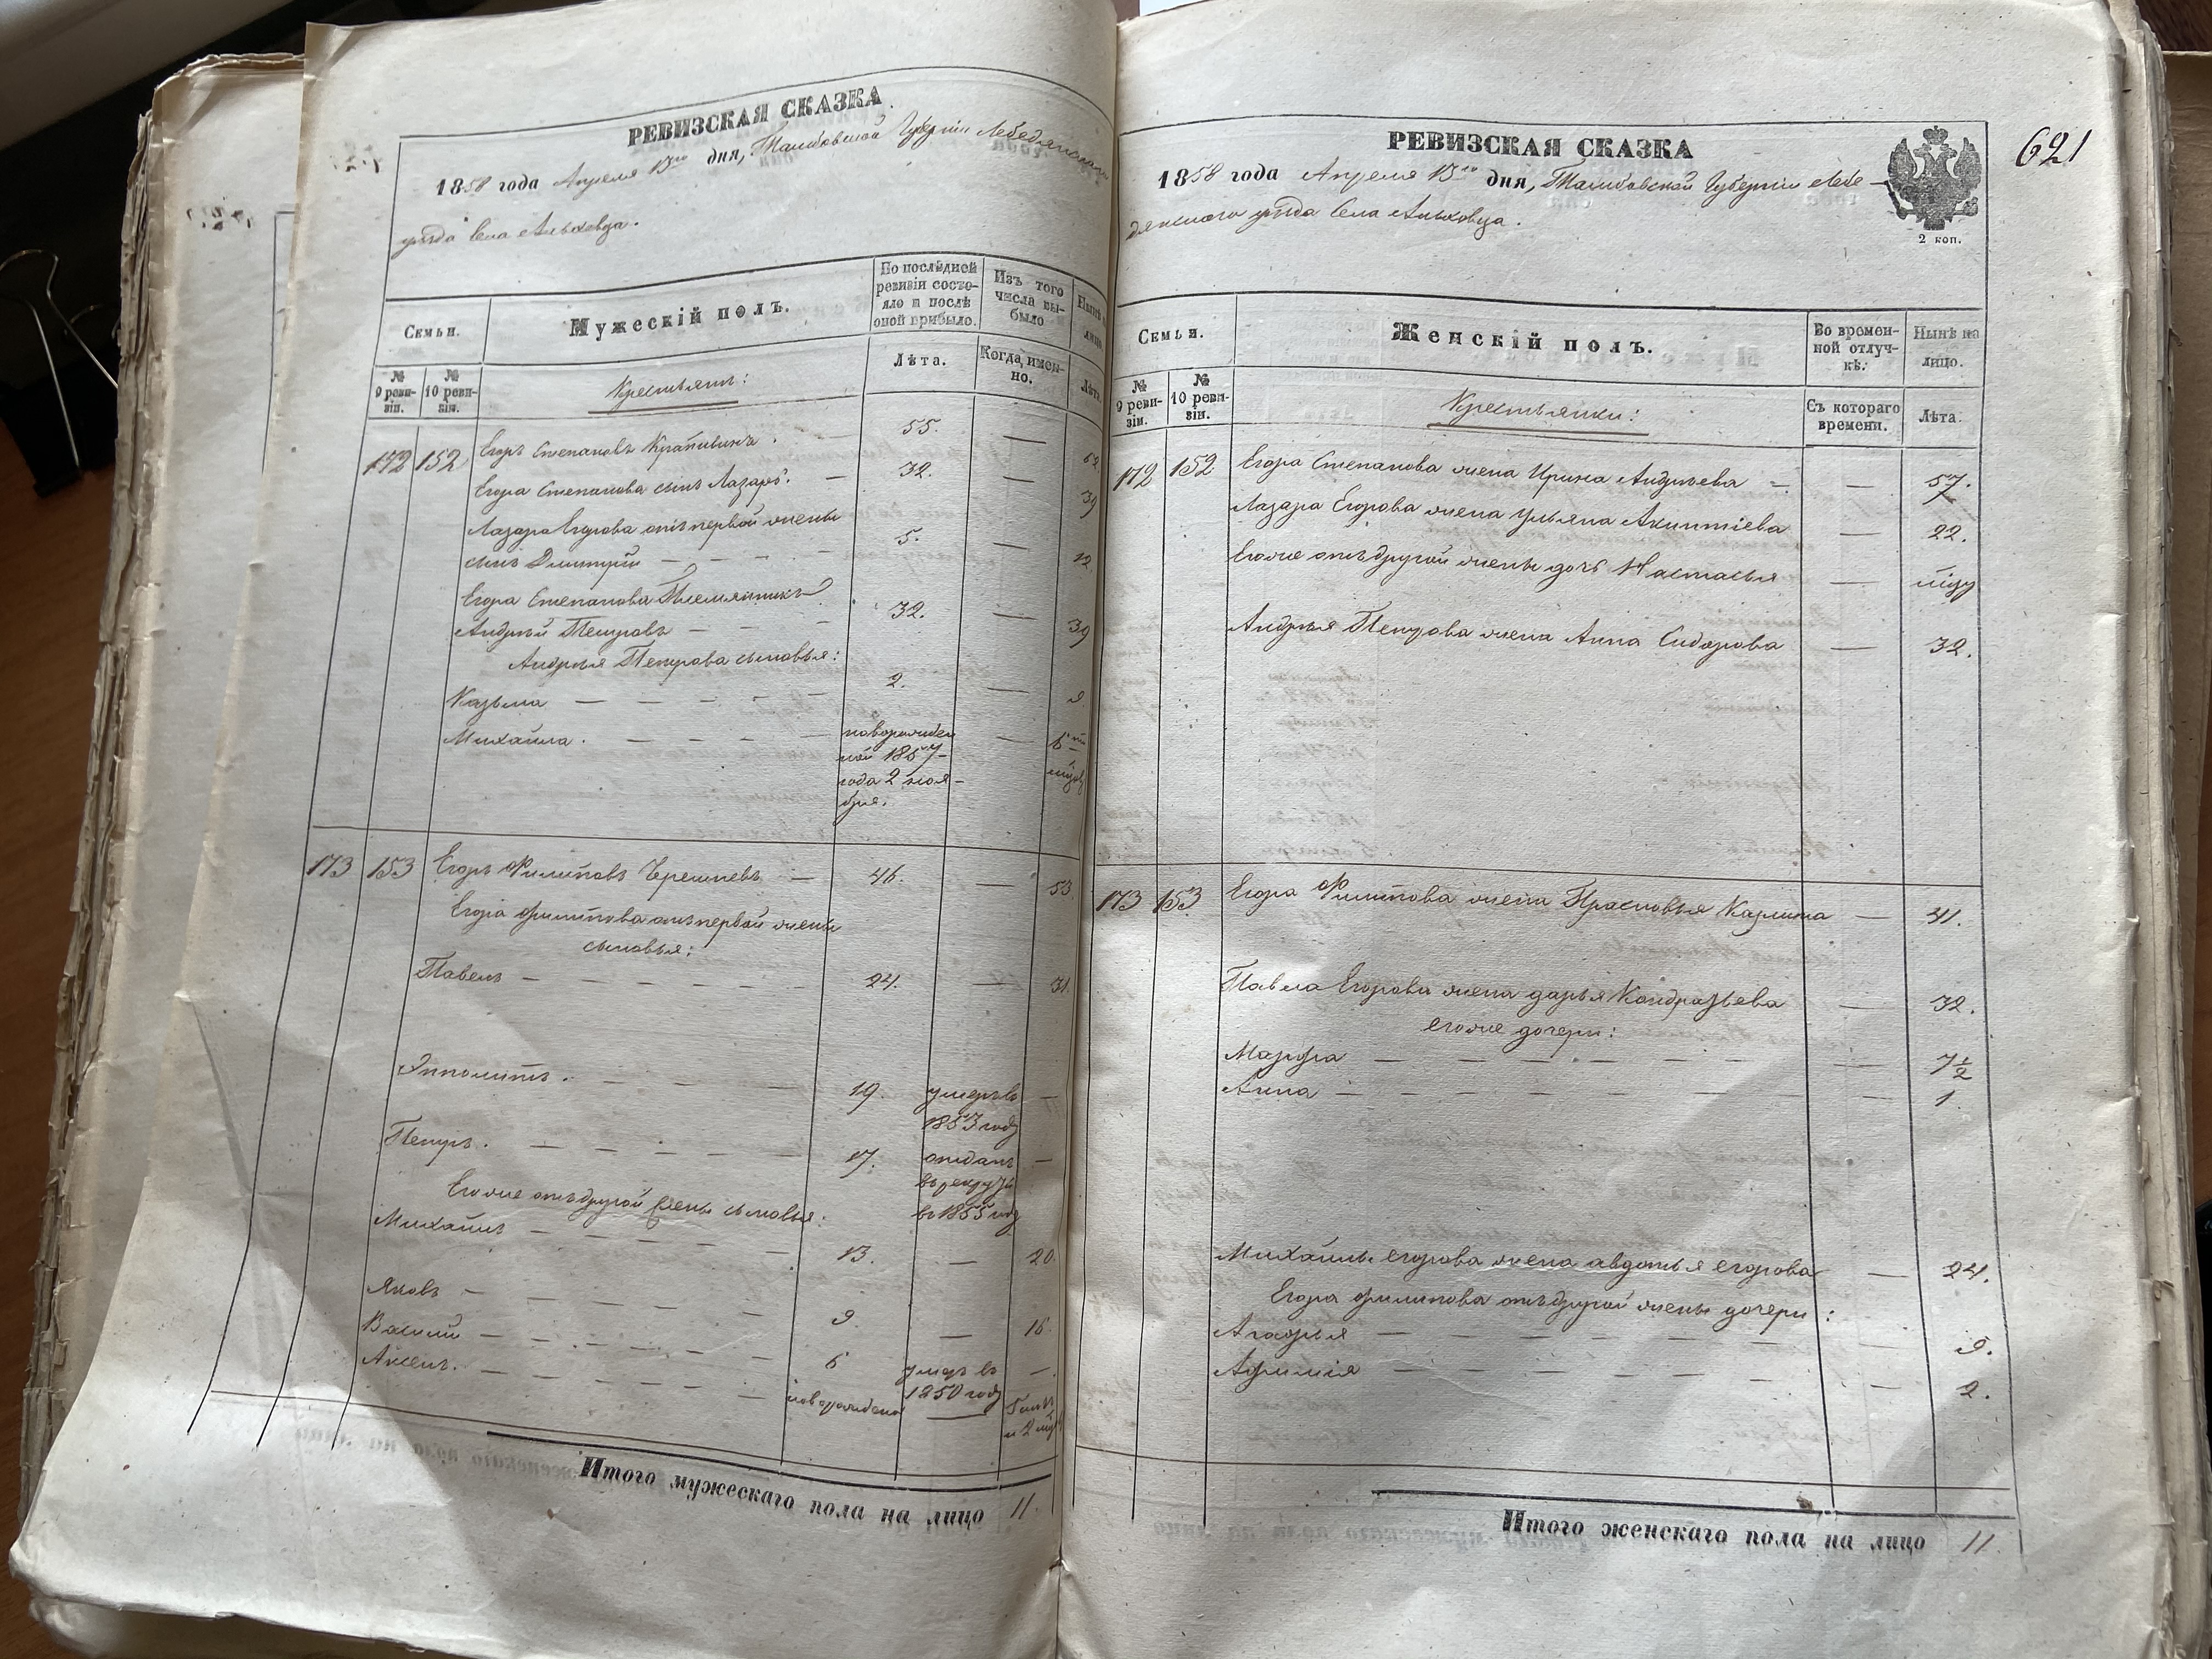 РЕВИЗСКАЯ СКАЗКА
1858 года Апреля 13го дня, Тамбовской Губерніи Лебедянскаго
уѣзда Села Ольховца.
Семьи.
Мужескій полъ.
По послѣдней ревизіи состояло и послѣ оной прибыло.
Изъ того числа выбыло
Нынѣ на лицо.
№ 9 ревизіи.
№ 10 ревизіи.
Крестьяне:
Лѣта.
Когда, именно.
Лѣта.
172 152 Егоръ Степановъ Крапивинъ. 55. — 62
Егора Степанова сынъ Лазарь. — 32. — 39
Лазаря Егорова отъ первой жены
сынъ Дмитрій — 5. — 12
Егора Степанова Племянникъ
Андрѣй Петровъ — 32. — 39
Андрѣя Петрова сыновья:
Казьма — 2. — 9
Михайла. — новорожден — 5ти
ной 1857 — мѣся
года 2 ноя-
бря.
173 153 Егоръ Филиповъ Черешневъ — 46. — 53
Егора Филипова отъ первой жены
сыновья:
Павелъ — 24. — 31
Ипполитъ. — 19. умеръ въ —
1853 году
Петръ. — 17. отданъ —
въ рекруты
въ 1855 году
Егоже отъ другой жены сыновья:
Михайла — 13. — 20.
Яковъ — 9. — 16.
Василій — 6 умеръ въ —
1850 году
Аксенъ. — новорожденой — 5 лѣтъ
и 2 мѣся
Итого мужескаго пола на лицо 11.
621
РЕВИЗСКАЯ СКАЗКА
1858 года Апреля 13го дня, Тамбовской Губерніи Лебе-
дянскаго уѣзда Села Ольховца.
2 коп.
Семьи.
Женскій полъ.
Во временной отлучкѣ.
Нынѣ на лицо.
№ 9 ревизіи.
№ 10 ревизіи.
Крестьянки:
Съ котораго времени.
Лѣта.
172 152 Егора Степанова жена Ирина Андрѣева — 57.
Лазаря Егорова жена Ульяна Акинтіева — 22.
Егоже отъ другой жены дочь Настасья — мѣся
Андрѣя Петрова жена Анна Сидорова — 32.
173 153 Егора Филипова жена Прасковья Карпина — 41.
Павла Егорова жена дарья Кондратьева — 32.
егоже дочери:
Марфа — 7½
Анна — 1.
Михайлы егорова жена авдотья егорова — 24.
Егора филипова отъ другой жены дочери:
Агафья — 9.
Афимія — 2.
Итого женскаго пола на лицо 11.